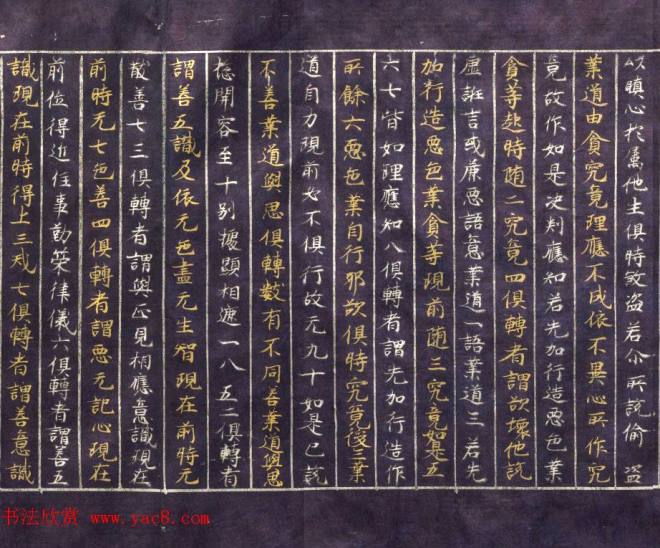 以瞋心於属他生俱時敓盗若尒所說偷盗
業道由貪究竟理應不成依不異心所作究
竟故作如是决判應知若先加行造惡色業
貪等起時随二究竟四俱轉者謂欲壞他說
虚誑言或麁惡語意業道一語業道三若先
加行造惡色業貪等現前随三究竟如是五
六七皆如理應知八俱轉者謂先加行造作
所餘六惡色業自行邪欲俱時究竟後三業
道自力現前必不俱行故无九十如是已說
不善業道與思俱轉數有不同善業道與思
惣開容至十別據顯相遮一八五二俱轉者
謂善五識及依无色盡无生智現在前時无
散善七三俱轉者謂與正見相應意識現在
前時无七色善四俱轉者謂惡无記心現在
前位得近住事勤策律儀六俱轉者謂善五
識現在前時得上三戒七俱轉者謂善意識
书法欣赏 www.yac8.com